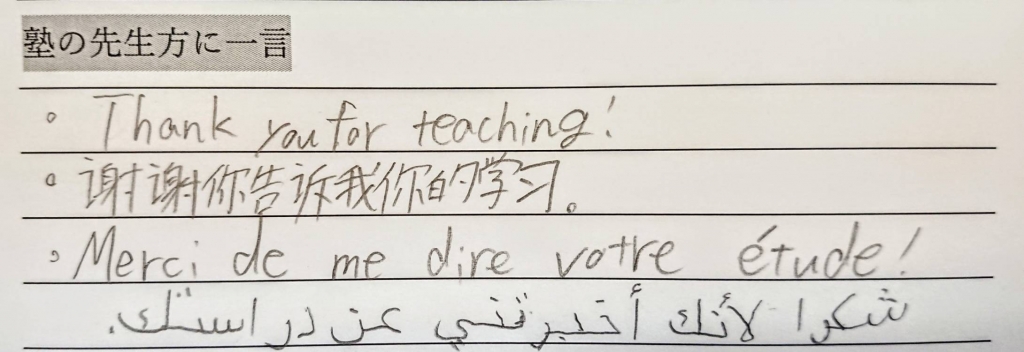 塾の先生方に一言
◦ Thank you for teaching!
◦ 谢谢你告诉我你的学习。
◦ Merci de me dire votre étude!
شكرا لأنك أخبرتني عن دراستك.